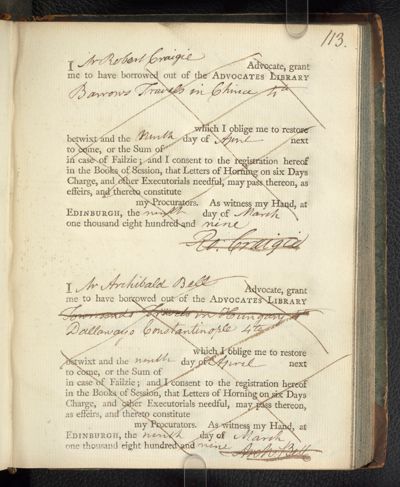 113.
I Mr Robert Craigie Advocate, grant
me to have borrowed out of the ADVOCATES LIBRARY
Barrows Travels in China 4to
which I oblige me to restore
betwixt and the ninth day of April next
to come, or the Sum of
in case of Failzie; and I consent to the registration hereof
in the Books of Session, that Letters of Horning on six Days
Charge, and other Executorials needful, may pass thereon, as
effeirs, and thereto constitute
my Procurators. As witness my Hand, at
EDINBURGH, the ninth day of March
one thousand eight hundred and nine
Ro: Craigie
I Mr Archibald Bell Advocate, grant
me to have borrowed out of the ADVOCATES LIBRARY
Townsends Travels in Hungary 4to
Dallaways Constantinople 4to
which I oblige me to restore
betwixt and the ninth day of April next
to come, or the Sum of
in case of Failzie; and I consent to the registration hereof
in the Books of Session, that Letters of Horning on six Days
Charge, and other Executorials needful, may pass thereon,
as effeirs, and thereto constitute
my Procurators. As witness my Hand, at
EDINBURGH, the ninth day of March
one thousand eight hundred and nine
Archd Bell